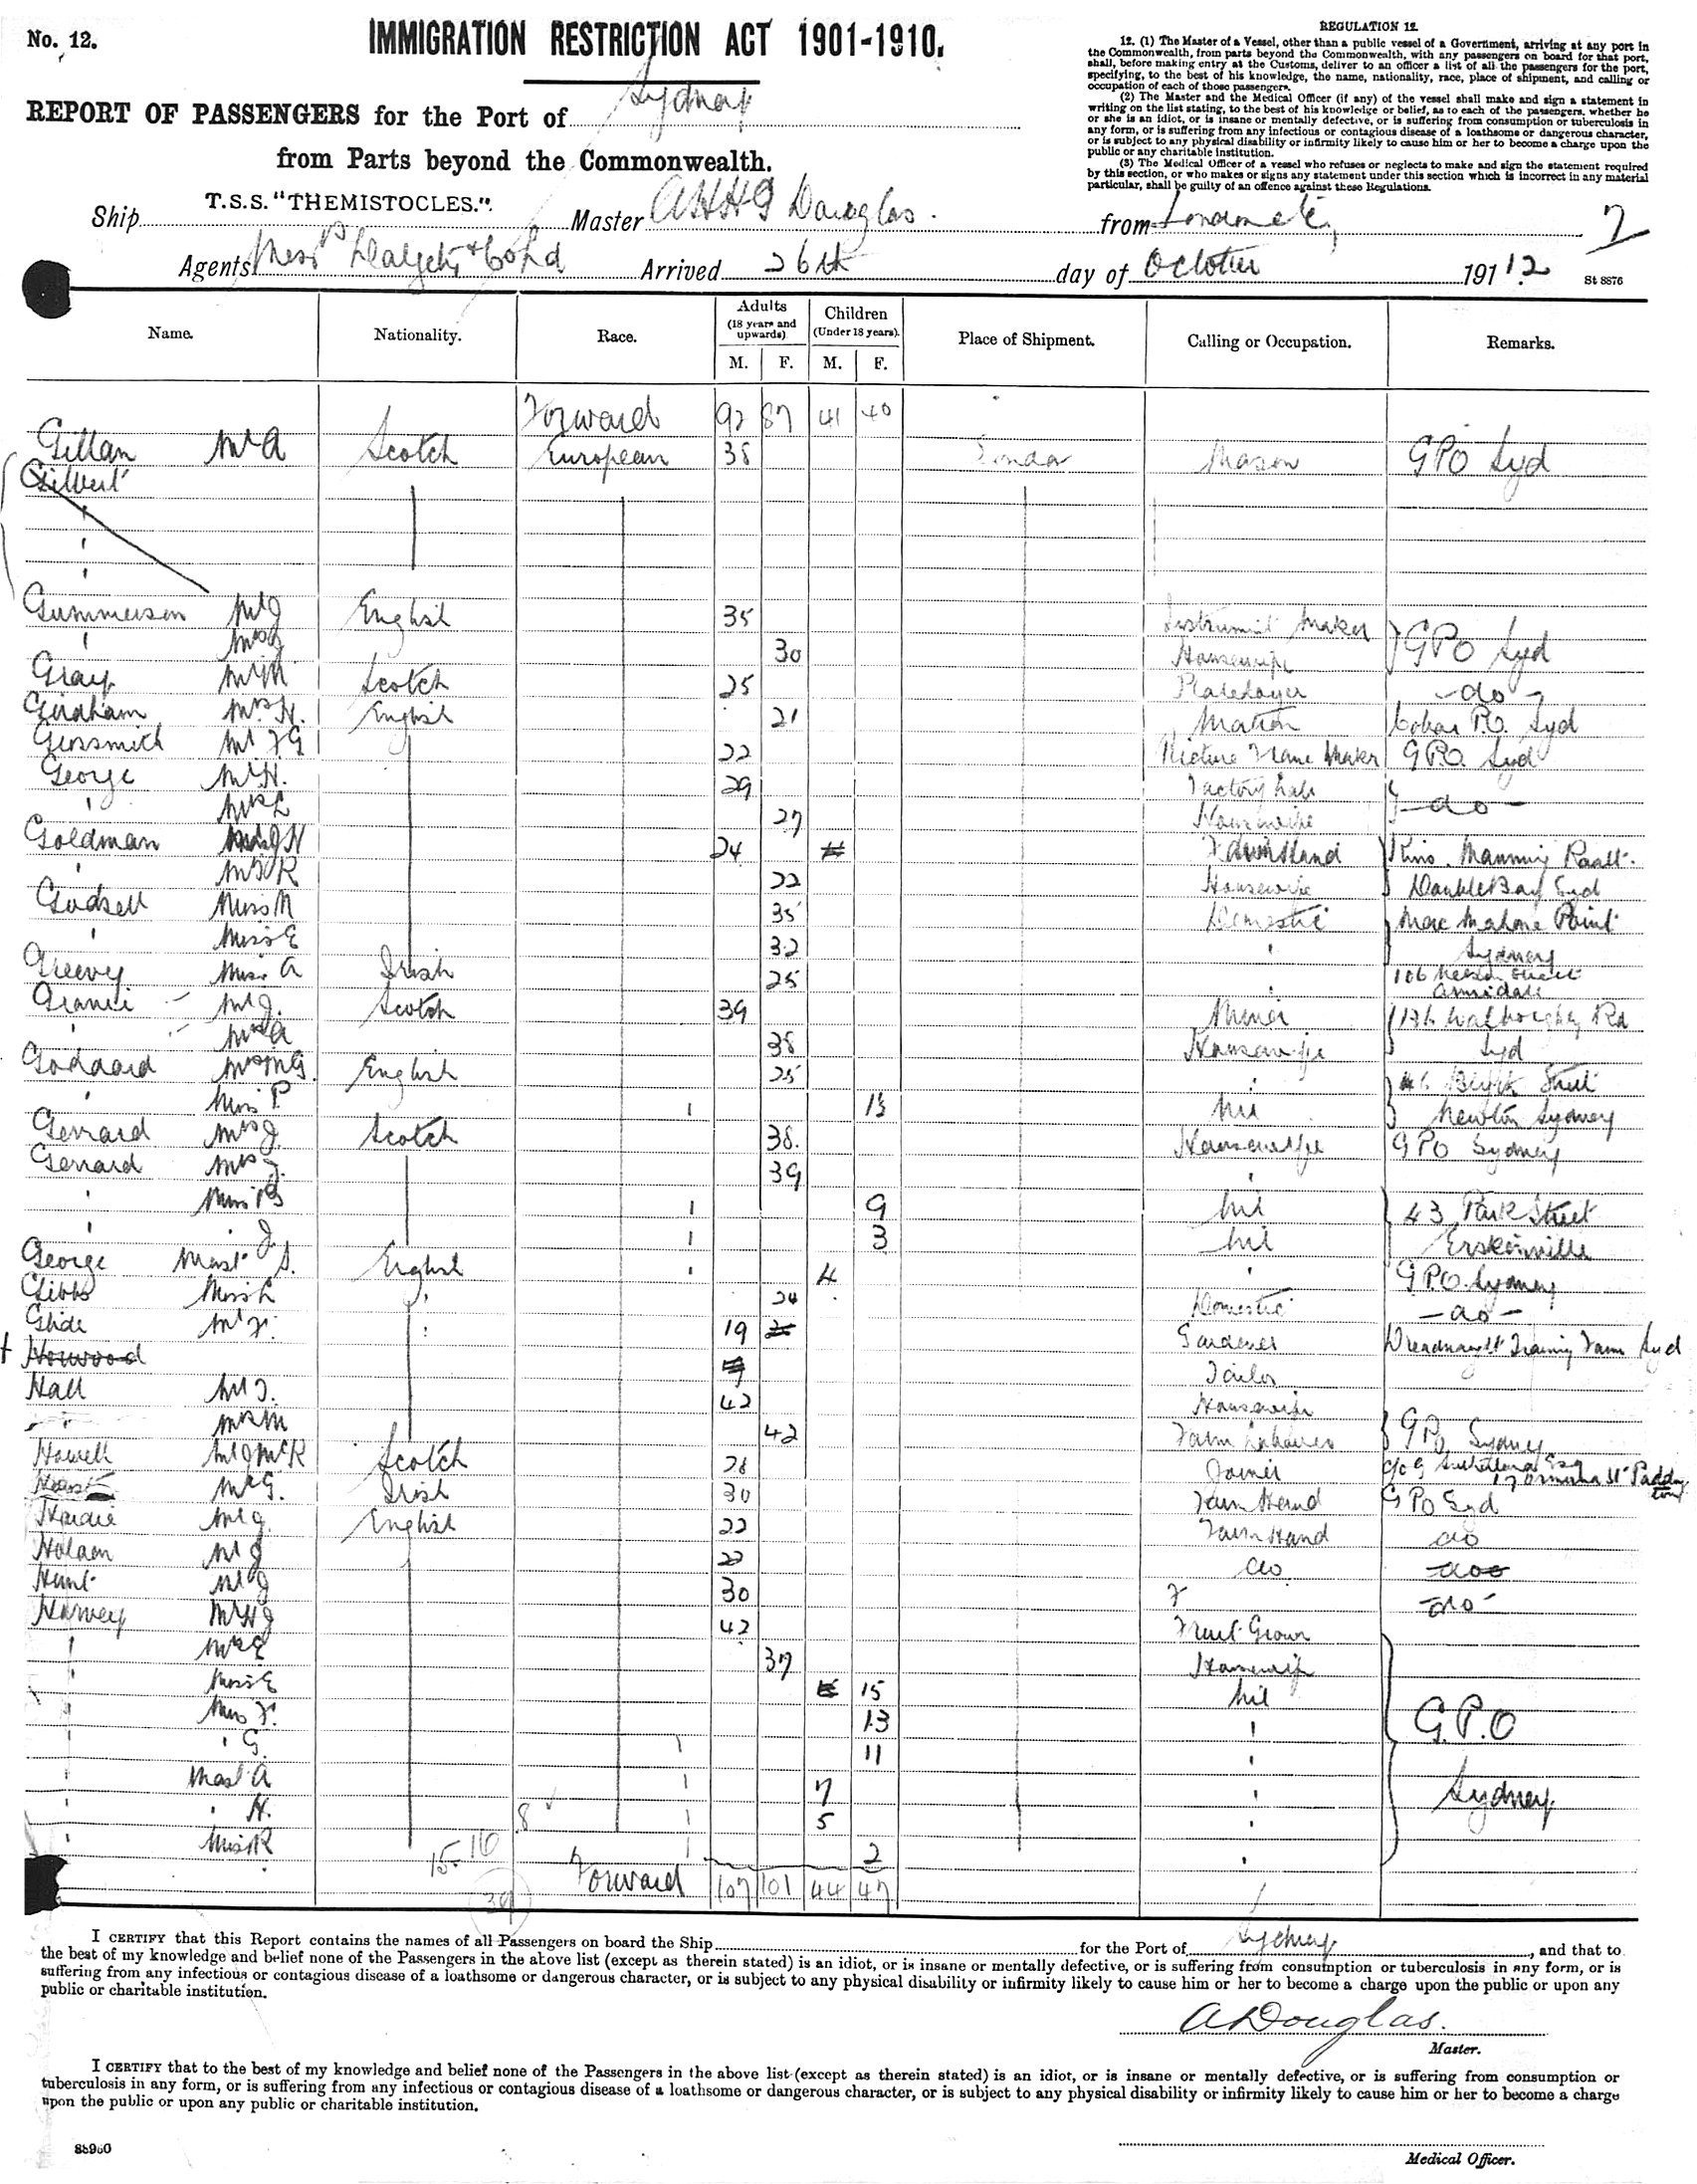 No. 12.
IMMIGRATION RESTRICTION ACT 1901-1910.
REPORT OF PASSENGERS for the Port of Sydney
from Parts beyond the Commonwealth.
REGULATION 12.
12. (1) The Master of a Vessel, other than a public vessel of a Government, arriving at any port in
the Commonwealth, from parts beyond the Commonwealth, with any passengers on board for that port,
shall, before making entry at the Customs, deliver to an officer a list of all the passengers for the port,
specifying, to the best of his knowledge, the name, nationality, race, place of shipment, and calling or
occupation of each of those passengers.
(2) The Master and the Medical Officer (if any) of the vessel shall make and sign a statement in
writing on the list stating, to the best of his knowledge or belief, as to each of the passengers, whether he
or she is an idiot, or is insane or mentally defective, or is suffering from consumption or tuberculosis in
any form, or is suffering from any infectious or contagious disease of a loathsome or dangerous character,
or is subject to any physical disability or infirmity likely to cause him or her to become a charge upon the
public or any charitable institution.
(3) The Medical Officer of a vessel who refuses or neglects to make and sign the statement required
by this section, or who makes or signs any statement under this section which is incorrect in any material
particular, shall be guilty of an offence against these Regulations.
Ship T.S.S. "THEMISTOCLES." Master Douglas. from London 7
Agents Messrs Dalgety & Co Ld Arrived 26th day of October 191 12. St 8876
Name. Nationality. Race. Adults (18 years and upwards) M. F. Children (Under 18 years). M. F. Place of Shipment. Calling or Occupation. Remarks.
Forward 92 87 41 40
Gillan Mr A Scotch European 38 London Mason GPO Syd
Gilbert
Gummerson Mr J English 35 Instrument Maker GPO Syd
" Mrs 30 Housewife
Gray Mr Scotch 25 Platelayer -do-
Mrs H. English 21 Matron Cobar P.O. Syd
Grossmith Mr F G 22 Picture Frame Maker GPO. Syd
George Mr H. 29 Factory Lab -do-
" Mrs L 27 Housewife
Goldman 24 Manning
" Mrs R 22 Housewife Double Bay Syd
Godsell Miss M 35 Domestic Mac Mahons Point
" Miss E 32 " Sydney
Greevy Miss A Irish 25 " 106 Street
Mr J. Scotch 39 Miner Rd
" Mrs A 38 Housewife Syd
Goddard Mrs M G. English 25 " Street
" Miss P 1½ nil Newton Sydney
Gerrard Mrs J. Scotch 38. Housewife GPO Sydney
Gerrard Mrs J. 39 "
" Miss B 9 nil 43 Park Street
" " J. 3 nil Erskinville
George Mast S. English 4 " G.P.O. Sydney
Gibbs Miss L " 24 Domestic -do-
Glide Mr F. " 19 Gardener Dreadnaught Training Farm Syd
Horwood Tailor
Hall Mr J. 42 Housewife
" Mrs M 42 Farm Labourer GPO Sydney
Howell Mr J McK Scotch 28 Joiner
Mr G. Irish 30 Farm Hand GPO Syd
Hardie Mr J. English 22 Farm Hand do
Mr J 22 do
Hunt Mr J 30 -do-
Harvey Mr H J 42 Fruit Grower
" Mrs E 37 Housewife
" Miss E 15 nil
" Miss F. 13 " G.P.O
" " G. 11 "
" Mast A 7 " Sydney.
" " H. 5 "
" Miss R 2 "
8
15 16
39
Forward 107 101 44 47
I CERTIFY that this Report contains the names of all Passengers on board the Ship for the Port of Sydney, and that to
the best of my knowledge and belief none of the Passengers in the above list (except as therein stated) is an idiot, or is insane or mentally defective, or is suffering from consumption or tuberculosis in any form, or is
suffering from any infectious or contagious disease of a loathsome or dangerous character, or is subject to any physical disability or infirmity likely to cause him or her to become a charge upon the public or upon any
public or charitable institution.
A Douglas.
Master.
I CERTIFY that to the best of my knowledge and belief none of the Passengers in the above list (except as therein stated) is an idiot, or is insane or mentally defective, or is suffering from consumption or
tuberculosis in any form, or is suffering from any infectious or contagious disease of a loathsome or dangerous character, or is subject to any physical disability or infirmity likely to cause him or her to become a charge
upon the public or upon any public or charitable institution.
Medical Officer.